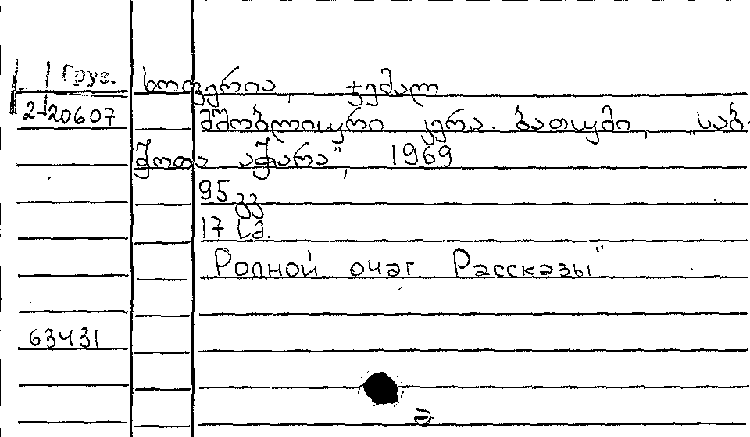 Груз.
2-20607
ჯემალ
მშობლიური კერა. ბათუმი, საბ.
ჭოთა აჭარა", 1969
95 გვ
17 სმ.
Родной очаг Рассказы"
63431